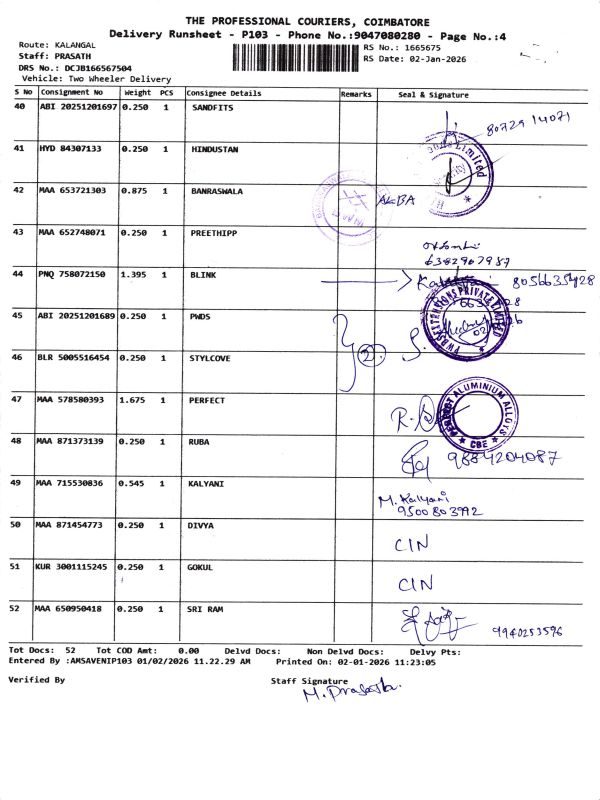 THE PROFESSIONAL COURIERS, COIMBATORE
Delivery Runsheet - P103 - Phone No.:9047080280 - Page No.:4
Route: KALANGAL
RS No.: 1665675
Staff: PRASATH
RS Date: 02-Jan-2026
DRS No.: DCJB166567504
Vehicle: Two Wheeler Delivery
S No Consignment No Weight PCS Consignee Details Remarks Seal & Signature
40 ABI 20251201697 0.250 1 SANDFITS
80729 14071
41 HYD 84307133 0.250 1 HINDUSTAN
Limited
42 MAA 653721303 0.875 1 BANRASWALA
43 MAA 652748071 0.250 1 PREETHIPP
6382907987
44 PNQ 758072150 1.395 1 BLINK
45 ABI 20251201689 0.250 1 PWDS
PRIVATE LIMITED
46 BLR 5005516454 0.250 1 STYLCOVE
2
47 MAA 578580393 1.675 1 PERFECT
PERFECT ALUMINIUM ALLOYS
CBE
48 MAA 871373139 0.250 1 RUBA
9884204087
49 MAA 715530836 0.545 1 KALYANI
M. Kalyani
9500803992
50 MAA 871454773 0.250 1 DIVYA
CIN
51 KUR 3001115245 0.250 1 GOKUL
CIN
52 MAA 650950418 0.250 1 SRI RAM
9940253596
Tot Docs: 52 Tot COD Amt: 0.00 Delvd Docs: Non Delvd Docs: Delvy Pts:
Entered By :AMSAVENIP103 01/02/2026 11.22.29 AM Printed On: 02-01-2026 11:23:05
Verified By
Staff Signature
M. Prasath.